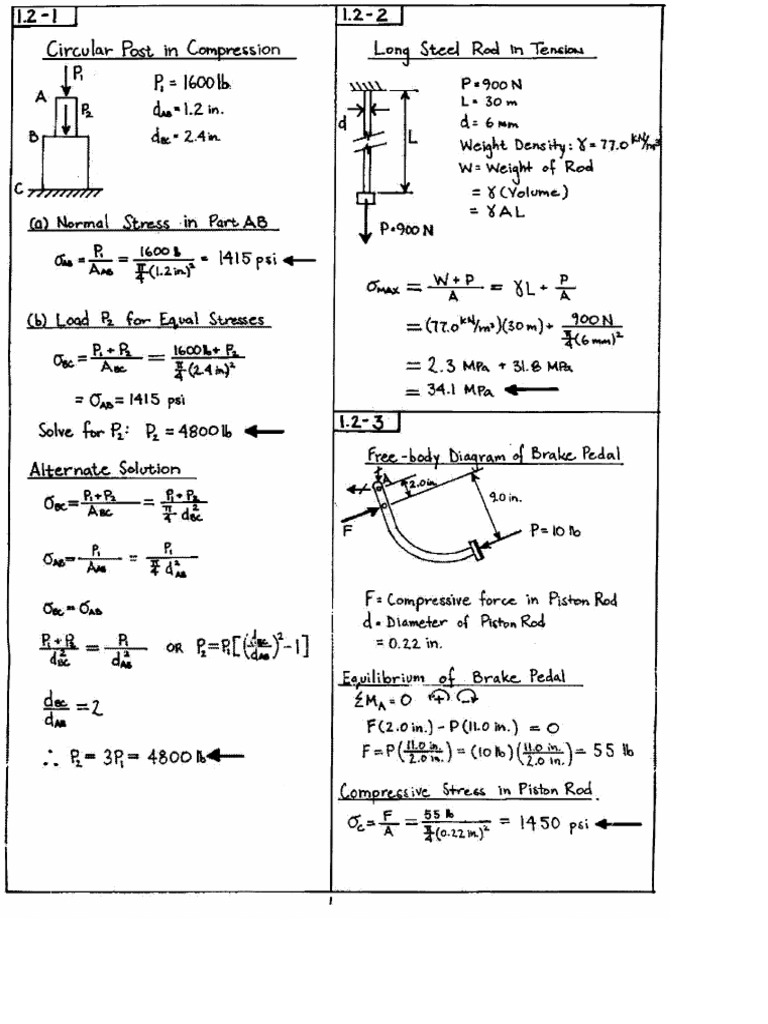 1.2-1
Circular Post in Compression
P₁
A
P₂
B
C
P₁ = 1600 lb.
d_AB = 1.2 in.
d_BC = 2.4 in.
(a) Normal Stress in Part AB
σ_AB = P₁/A_AB = 1600 lb/(π/4 (1.2 in)²) = 1415 psi ←
(b) Load P₂ for Equal Stresses
σ_BC = (P₁ + P₂)/A_BC = (1600 lb + P₂)/(π/4 (2.4 in)²)
= σ_AB = 1415 psi
Solve for P₂: P₂ = 4800 lb ←
Alternate Solution
σ_BC = (P₁+P₂)/A_BC = (P₁+P₂)/(π/4 d²_BC)
σ_AB = P₁/A_AB = P₁/(π/4 d²_AB)
σ_BC = σ_AB
(P₁+P₂)/d²_BC = P₁/d²_AB OR P₂ = P₁[(d_BC/d_AB)² - 1]
d_BC/d_AB = 2
∴ P₂ = 3P₁ = 4800 lb ←
1.2-2
Long Steel Rod in Tension
d
L
P = 900 N
P = 900 N
L = 30 m
d = 6 mm
Weight Density: γ = 77.0 kN/m³
W = Weight of Rod
= γ (Volume)
= γ A L
σ_MAX = (W + P)/A = γL + P/A
= (77.0 kN/m³)(30 m) + 900 N/(π/4 (6 mm)²)
= 2.3 MPa + 31.8 MPa
= 34.1 MPa ←
1.2-3
Free-body Diagram of Brake Pedal
A
2.0 in.
9.0 in.
F
P = 10 lb
F = Compressive force in Piston Rod
d = Diameter of Piston Rod
= 0.22 in.
Equilibrium of Brake Pedal
ΣM_A = 0 + -
F(2.0 in.) - P(11.0 in.) = 0
F = P(11.0 in./2.0 in.) = (10 lb)(11.0 in./2.0 in.) = 55 lb
Compressive Stress in Piston Rod.
σ_C = F/A = 55 lb/(π/4 (0.22 in.)²) = 1450 psi ←
1